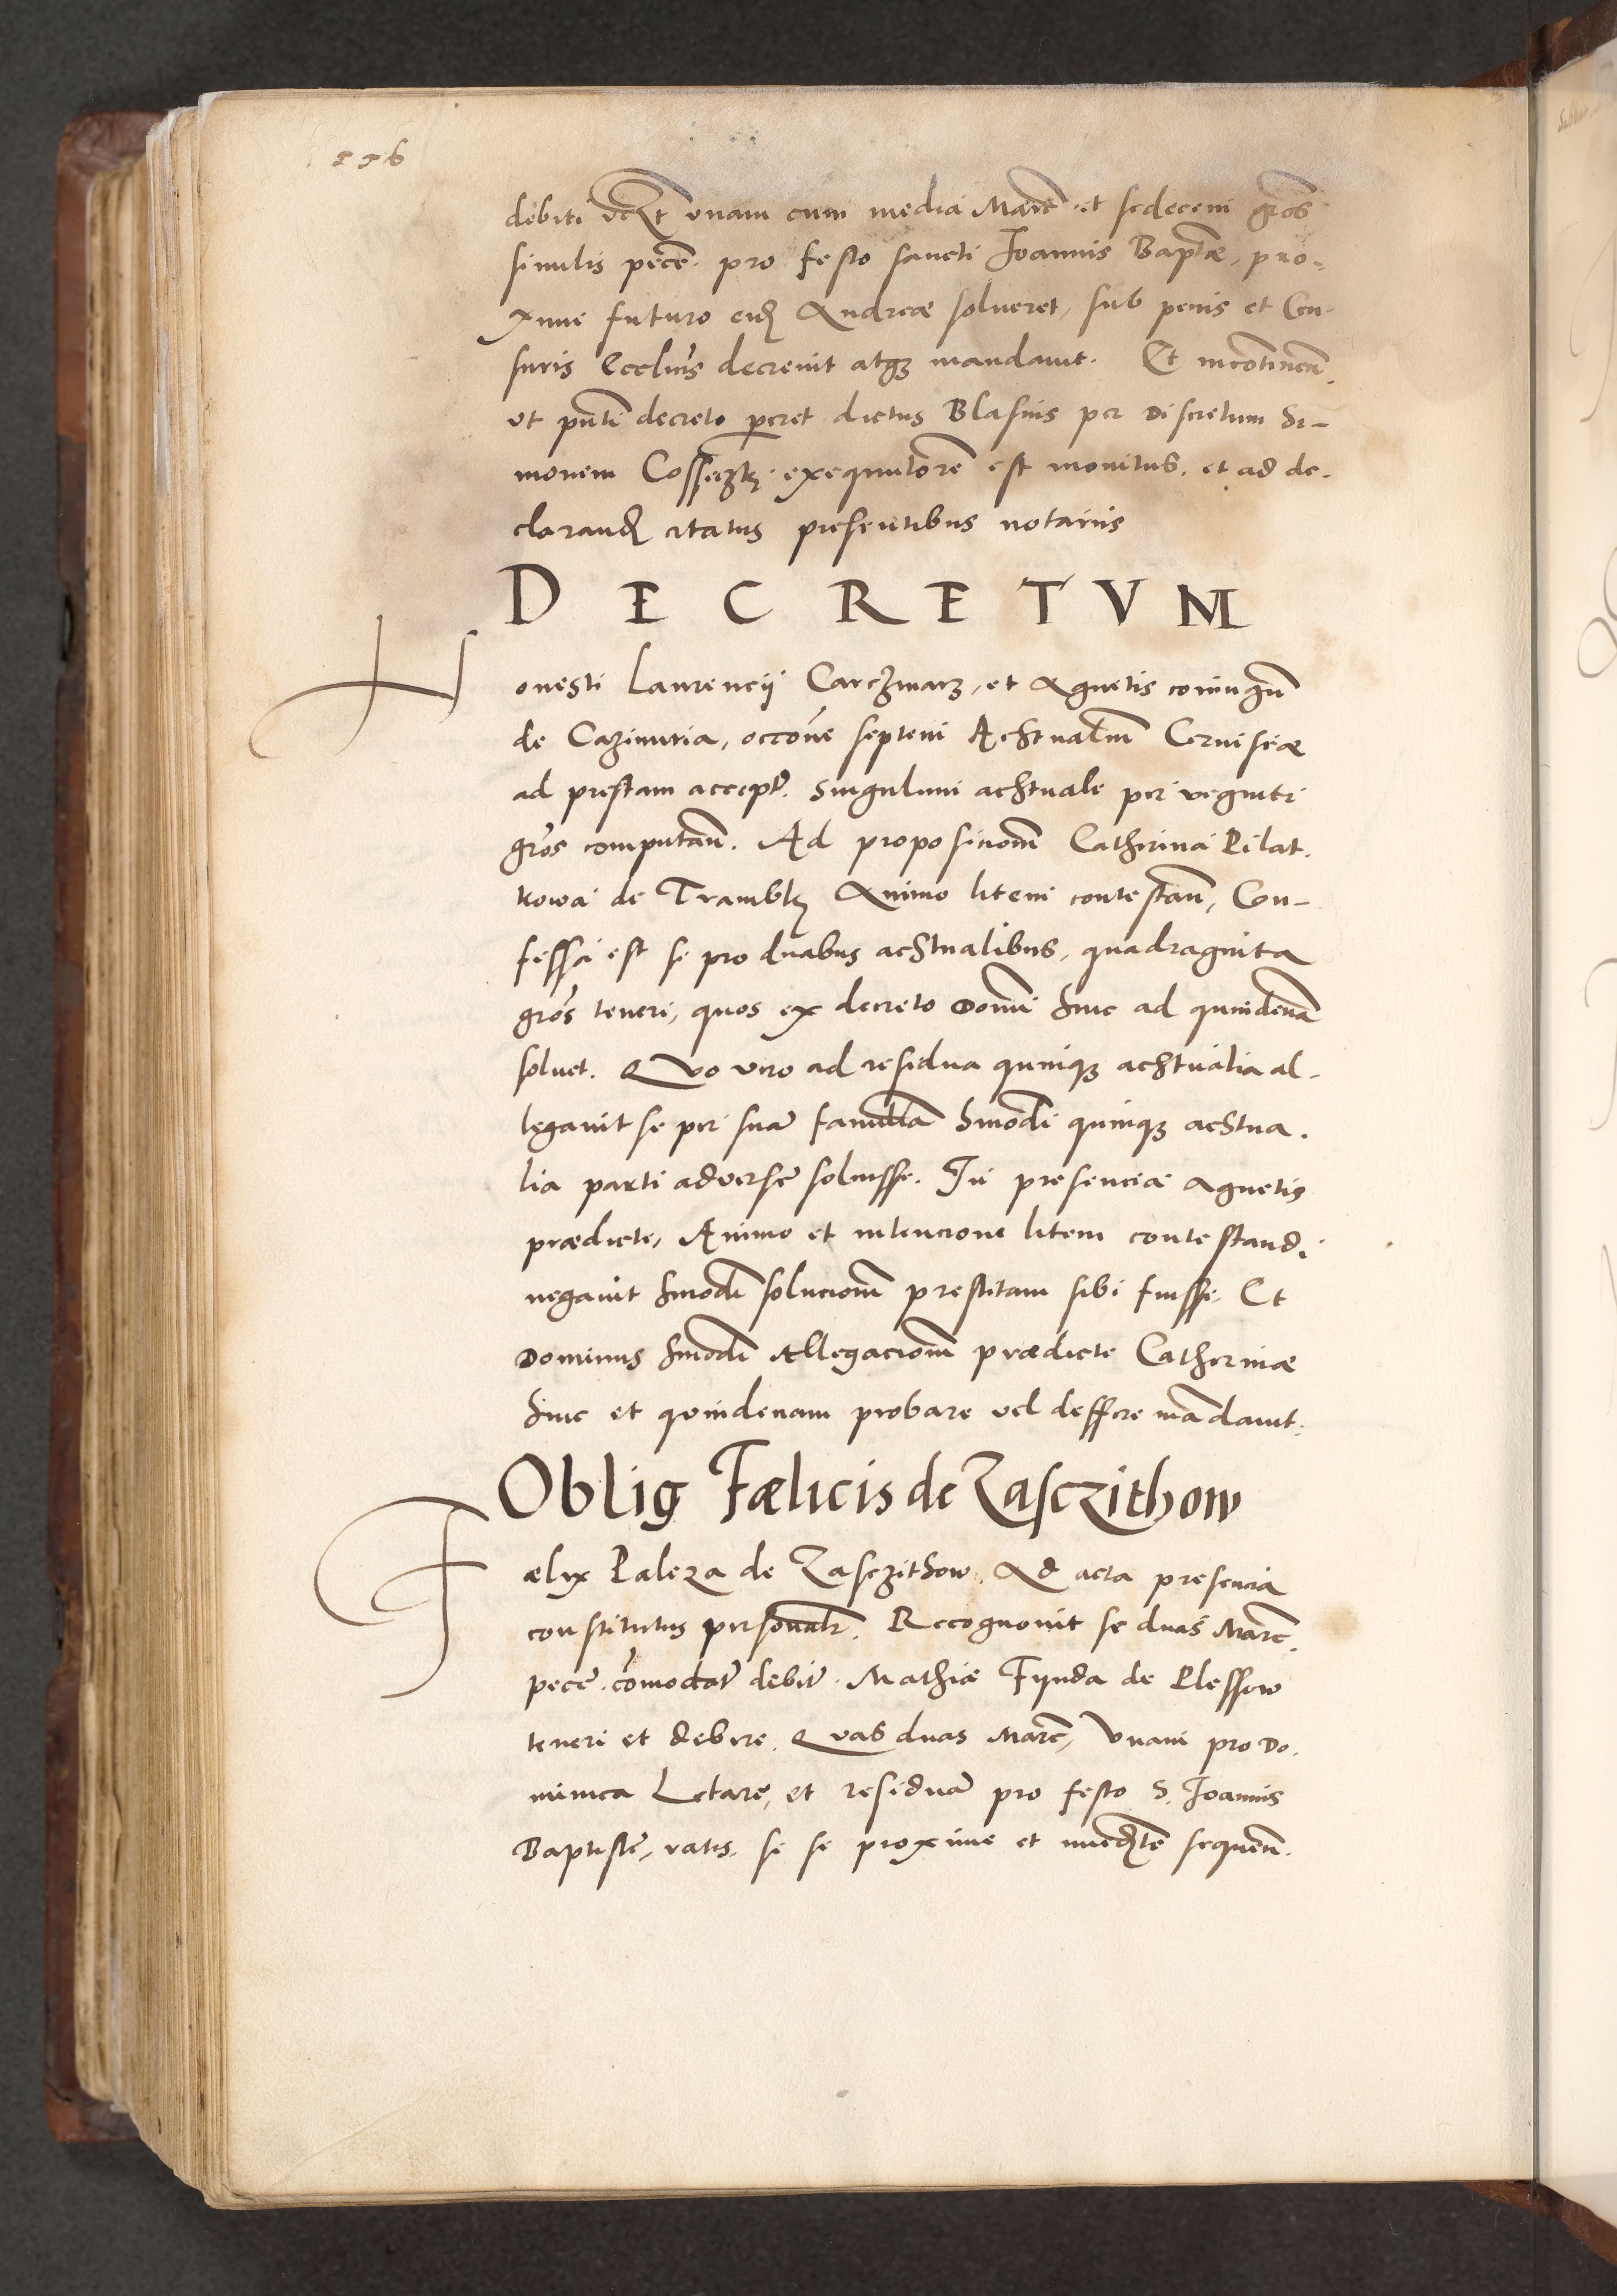 116
debiti vczt vnam cum media Marc et sedecem gros
similis pece. pro festo sancti Joannis Baptae, pro-
xime futuro eid Andreae solueret, sub penis et Cen-
suris Eccluis decreuit atq mandauit. Et incontinen
vt pnti decreto pareret dictus Blasius per Discretum Si-
monem exequutore est monitus. et ad de-
clarand citatus presentibus notariis
DECRETVM
Honesti Laurencij Carczmarz, et Agnetis coniugu
de Cazimiria, occone septem Achtualiu Ceruisiae
ad prestam accept. Singulum achtuale per veginti
gros computan. Ad proposicionem Catherina Pilat-
kowa de Trambky Animo litem contestan, Con-
fessa est se pro duabus achtualibus, quadraginta
gros teneri, quos ex decreto Domi hinc ad quindena
soluet. Quo vero ad residua quinq achtualia al-
legauit se per sua famula hmodi quinq achtua-
lia parti aduerse soluisse. In presencia Agnetis
praedicte, Animo et intencione litem contestandi
negauit hmodi solucionem prestitam sibi fuisse. Et
Dominus hmodi Allegacionem praedicte Catherinae
hinc et quindenam probare vel deffere mandauit.
Oblig Faelicis de Zasczithow
Faelix Paleza de Zasczithow. Ad acta presencia
constitutus personalr. Recognouit se duas Marc.
pece. comodat debit. Mathiae Fynda de Plessow
teneri et debere. Quas duas Marc, Vnam pro Do-
minica Letare, et residua pro festo S. Joannis
Baptiste, ratis. se se proxime et immediate sequen.